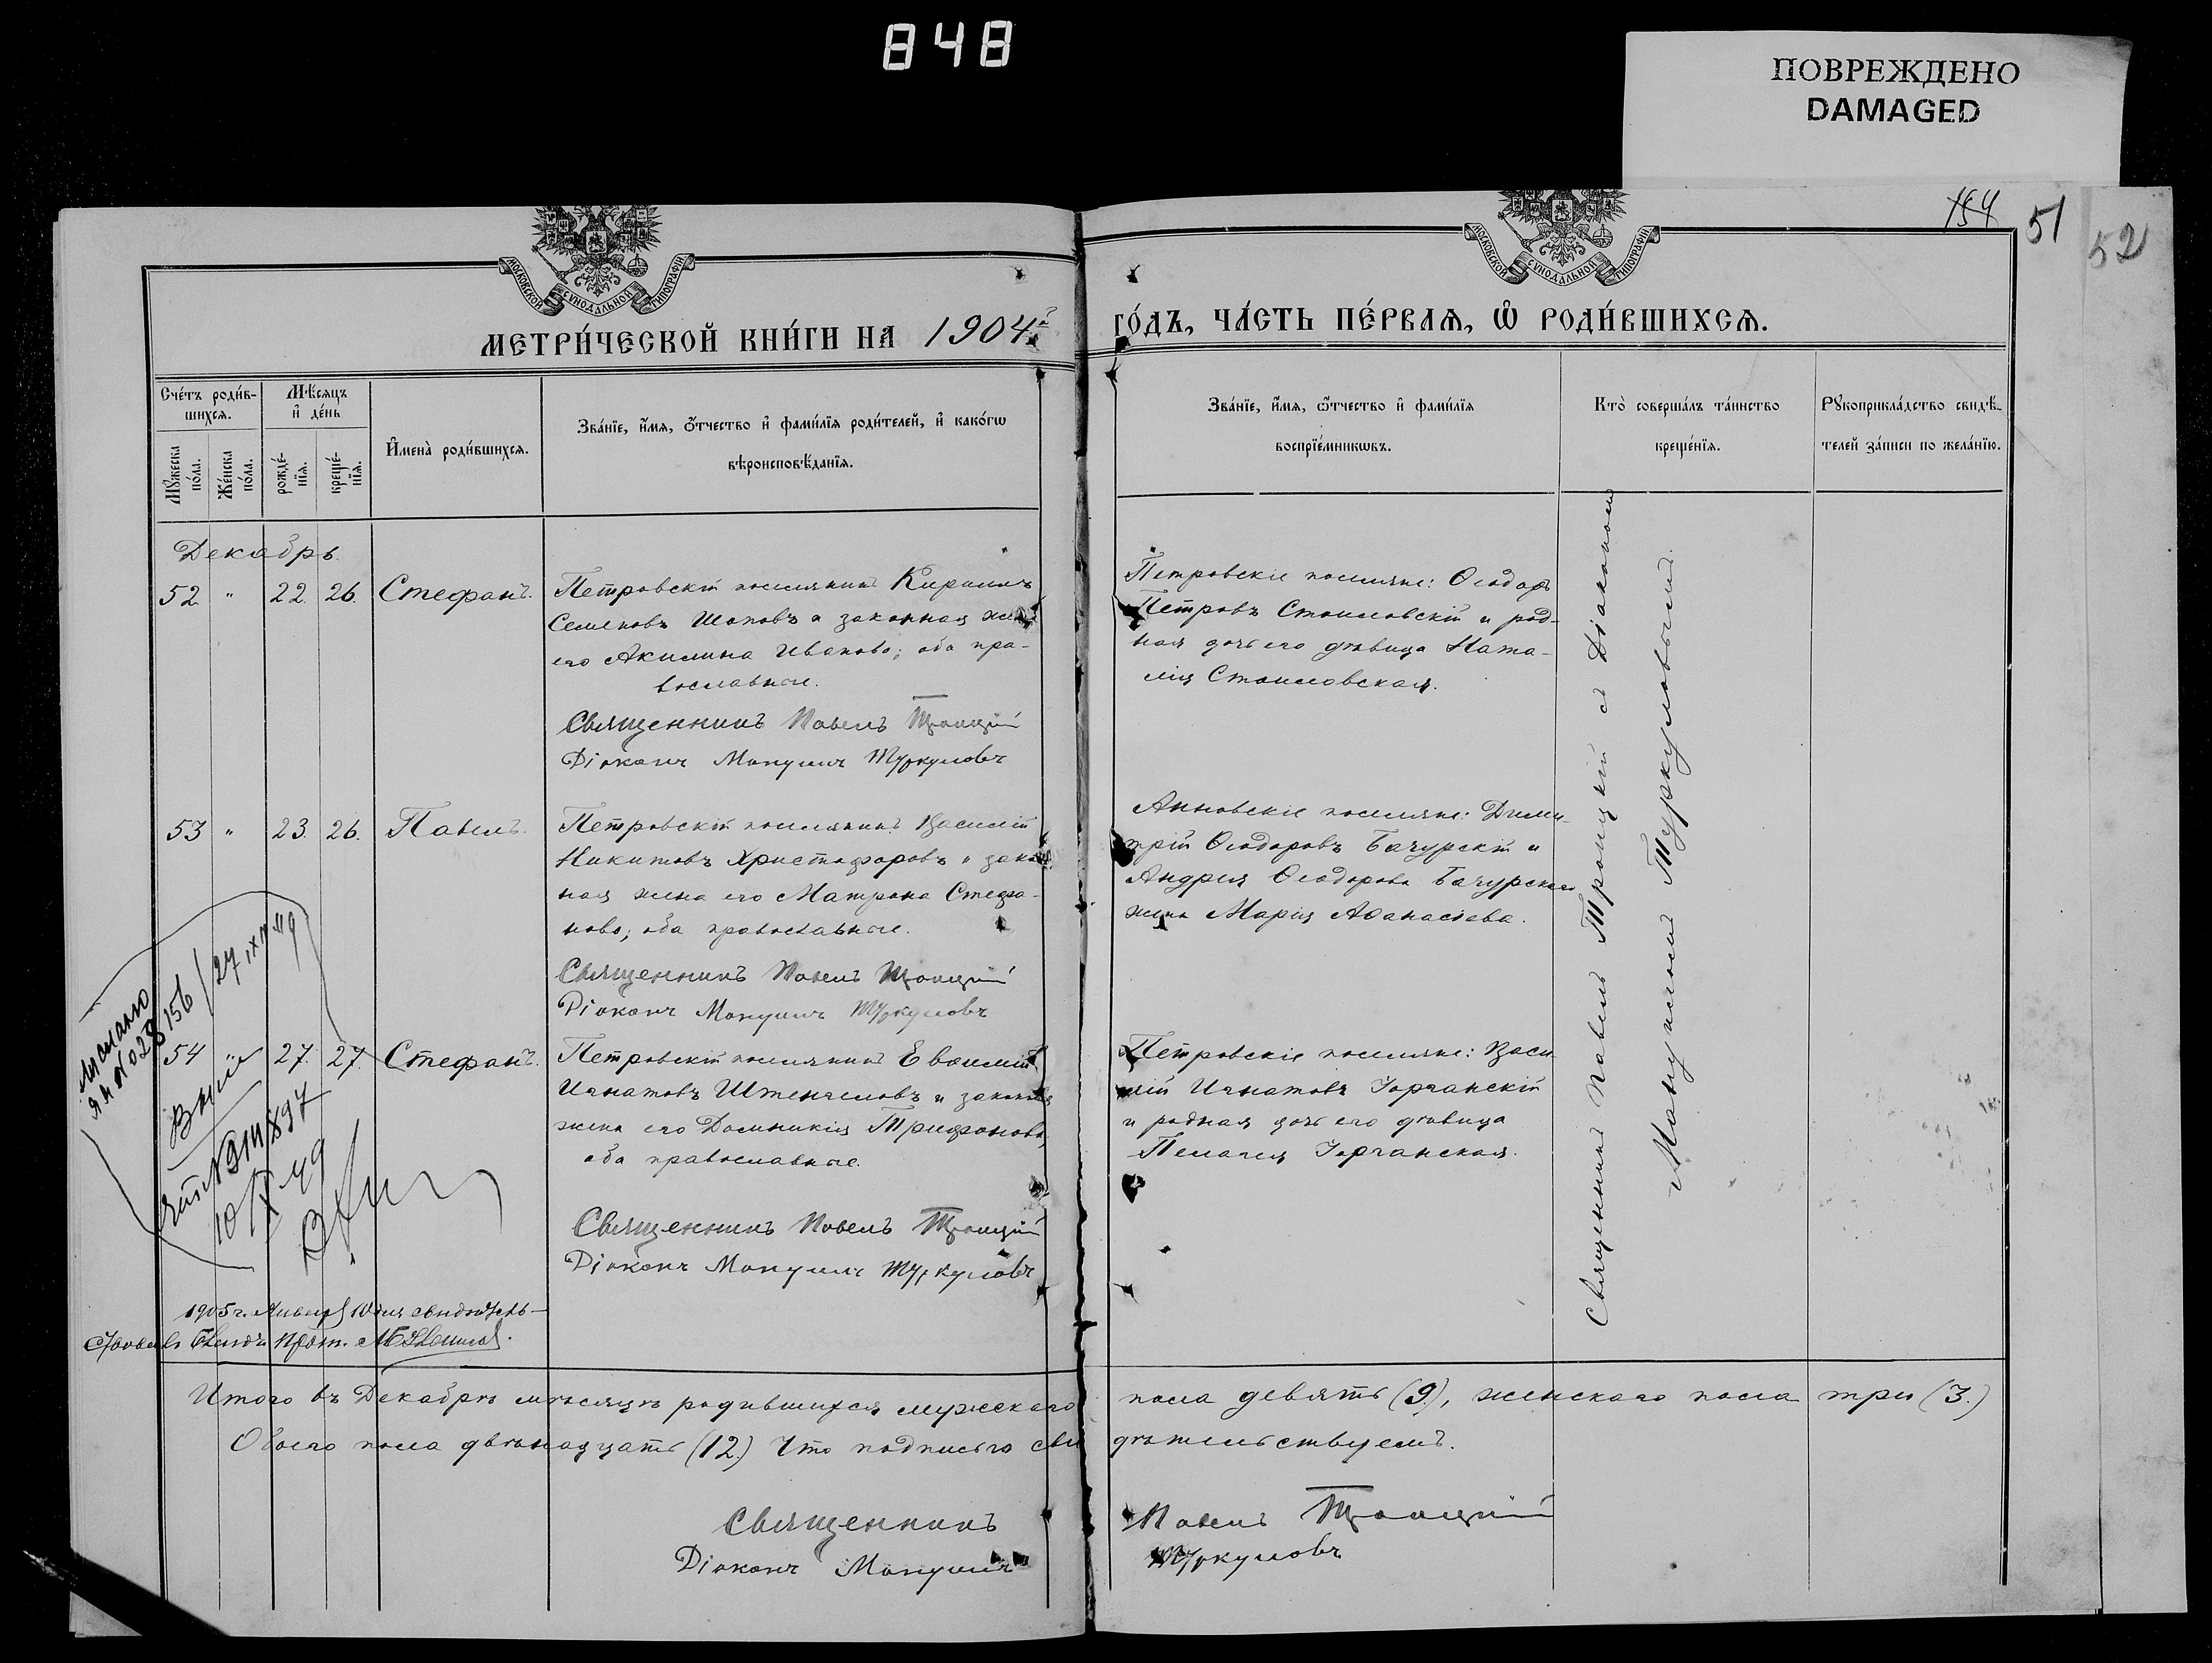 848
ПОВРЕЖДЕНО
DAMAGED
154 51
52
МОСКОВСКОЙ СУНОДАЛЬНОЙ ТИПОГРАФІИ
МОСКОВСКОЙ СУНОДАЛЬНОЙ ТИПОГРАФІИ
МЕТРИ́ЧЕСКОЙ КНИ́ГИ НА 1904й
ГО́ДЪ, ЧА́СТЬ ПЕ́РВАѦ, Ѡ РОДИ́ВШИХСѦ.
Сче́тъ роди́в-
шихсѧ.
Мꙋжеска по́ла.
Же́нска по́ла.
Мѣ́сѧцъ
и де́нь
рожде́-
нїѧ.
креще́-
нїѧ.
Имена̀ роди́вшихсѧ.
Зва́нїе, и́мѧ, ѻ҆́тчество и фами́лїѧ роди́телей, и како́гѡ
вѣроисповѣ́данїѧ.
Зва́нїе, и́мѧ, ѻ҆́тчество и фами́лїѧ
воспрїе́мникѡвъ.
Кто̀ соверша́лъ та́инство
креще́нїѧ.
Рꙋкоприкла́дство свидѣ́-
телей за́писи по жела́нїю.
Декабрь.
52 " 22. 26. Стефанъ.
Петровскій поселянинъ
Семеновъ Шоповъ и законная жена
его Акилина Иванова; оба пра-
вославные.
Священникъ Павелъ Троицкій
Діаконъ Мануилъ Туркуловъ
Петровскіе поселяне: Ѳеодоръ
Петровъ Стоиловскій и род-
ная дочь его дѣвица Ната-
лія Стоиловская.
53 " 23. 26. Павелъ.
Петровскій поселянинъ Василій
Никитовъ Христофоровъ и закон-
ная жена его Матрона Стефа-
нова; оба православные.
Священникъ Павелъ Троицкій
Діаконъ Мануилъ Туркуловъ
Анновскіе поселяне: Дими-
трій Ѳеодоровъ Бачурскій и
Андрея Ѳеодорова Бачурскаго
жена Марія Аѳанасіева.
54 " 27. 27. Стефанъ.
Петровскій поселянинъ Евѳимій
Игнатовъ Штенгеловъ и законная
жена его Доминикія Трифонова,
оба православные.
Священникъ Павелъ Троицкій
Діаконъ Мануилъ Туркуловъ
Петровскіе поселяне: Васи-
лій Игнатовъ Горганскій
и родная дочь его дѣвица
Пелагея Горганская.
Священникъ Павелъ Троицкій съ Діакономъ
Мануиломъ Туркуловымъ.
10/X 49
1905 г. Января 10 дня свидѣтель-
Итого въ Декабрѣ мѣсяцѣ родившихся мужескаго пола девять (9), женскаго пола три (3.)
Обоего пола двѣнадцать (12.) Что подписью сви дѣтельствуемъ.
Священникъ Павелъ Троицкій
Діаконъ Мануилъ Туркуловъ